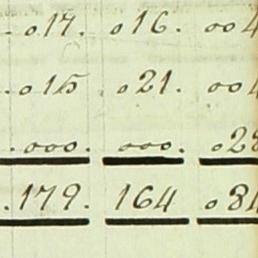 017. 016. 004
015 021. 004
000. 000. 028
179. 164 084